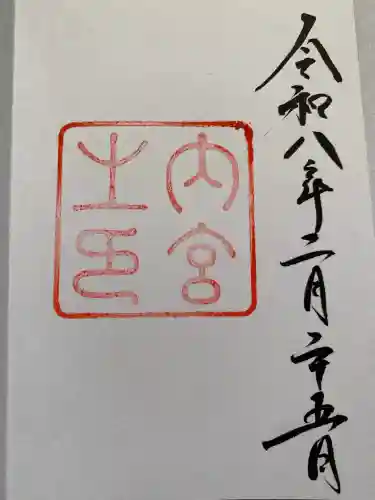 令和八年二月二十五日
内宮
之印